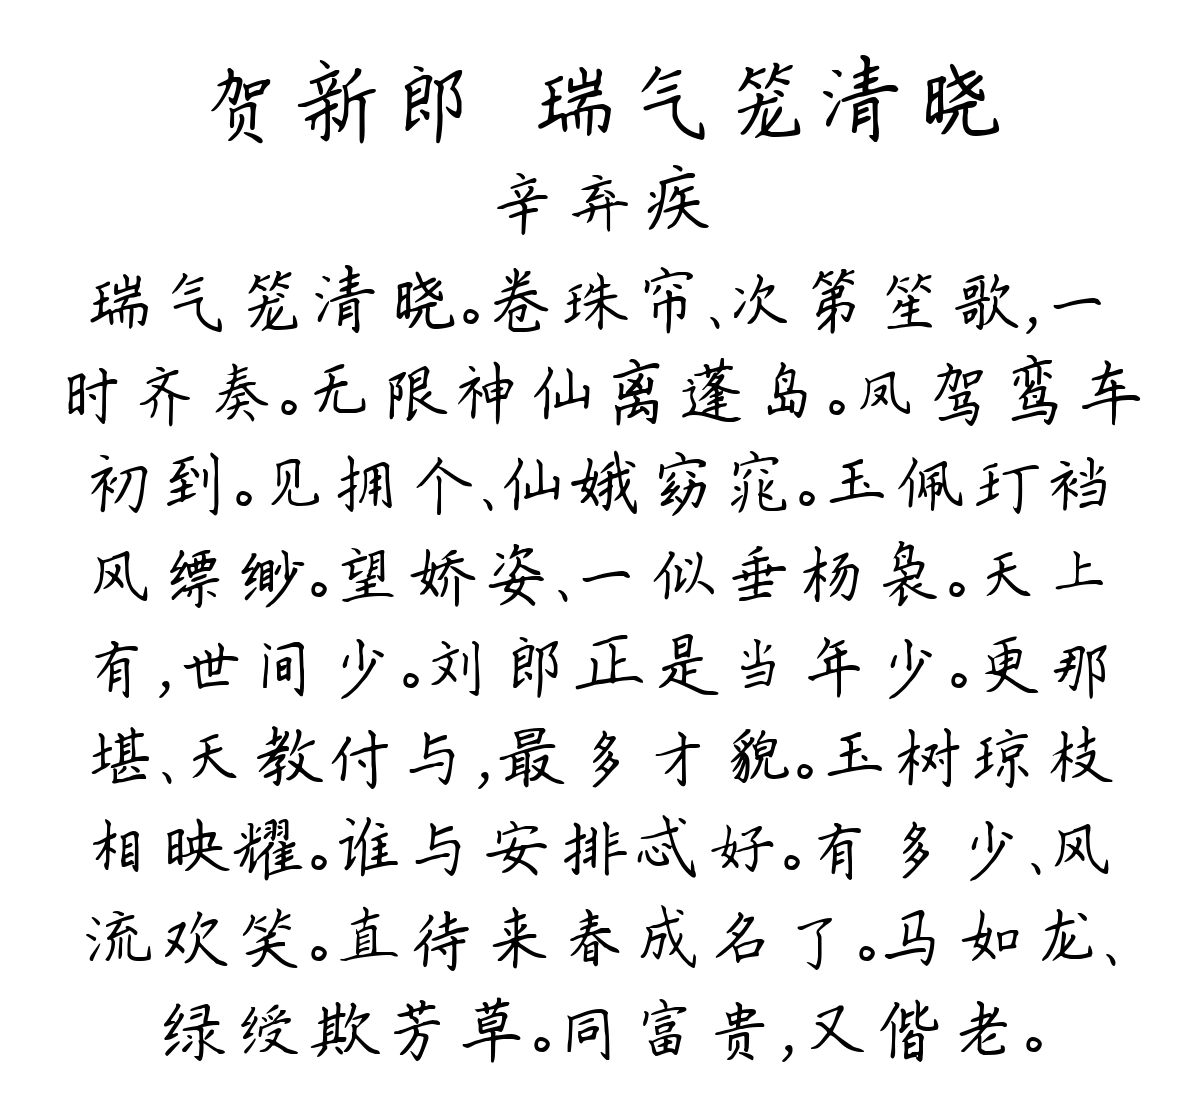 贺新郎 瑞气笼清晓
辛弃疾
瑞气笼清晓。卷珠帘、次第笙歌,一
时齐奏。无限神仙离蓬岛。凤驾鸾车
初到。见拥个、仙娥窈窕。玉佩玎裆
风缥缈。望娇姿、一似垂杨袅。天上
有,世间少。刘郎正是当年少。更那
堪、天教付与,最多才貌。玉树琼枝
相映耀。谁与安排忒好。有多少、风
流欢笑。直待来春成名了。马如龙、
绿绶欺芳草。同富贵,又偕老。